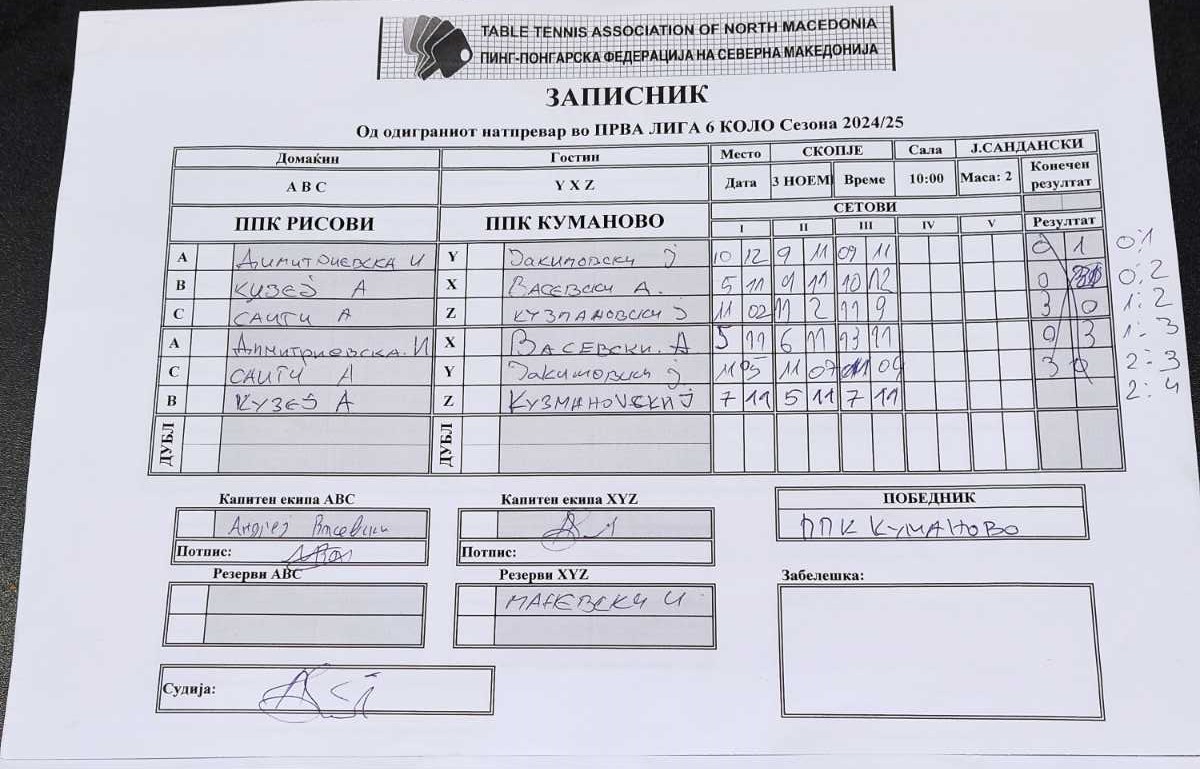 TABLE TENNIS ASSOCIATION OF NORTH MACEDONIA
ПИНГ-ПОНГАРСКА ФЕДЕРАЦИЈА НА СЕВЕРНА МАКЕДОНИЈА
ЗАПИСНИК
Од одиграниот натпревар во ПРВА ЛИГА 6 КОЛО Сезона 2024/25
Домаќин Гостин Место СКОПЈЕ Сала Ј.САНДАНСКИ
A B C Y X Z Дата 3 НОЕМ Време 10:00 Маса: 2 Конечен резултат
ППК РИСОВИ ППК КУМАНОВО СЕТОВИ
I II III IV V Резултат
A Димитриевска И Y Јакимовски Ј 10 12 9 11 09 11 0 1 0:1
B Кузеј А X Васевски А. 5 11 9 11 10 12 0 0:2
C Саити А Z Кузмановски Ј 11 02 11 2 11 9 3 0 1:2
A Димитриевска. И X Васевски. А 5 11 6 11 13 11 0 3 1:3
C Саити А Y Јакимовски Ј 11 05 11 07 11 3 0 2:3
B Кузеј А Z Кузмановски Ј 7 11 5 11 7 11 2:4
ДУБЛ ДУБЛ
Капитен екипа ABC Капитен екипа XYZ ПОБЕДНИК
Андреј Васевски ППК Куманово
Потпис: Потпис:
Резерви ABC Резерви XYZ Забелешка:
Маневски И
Судија: